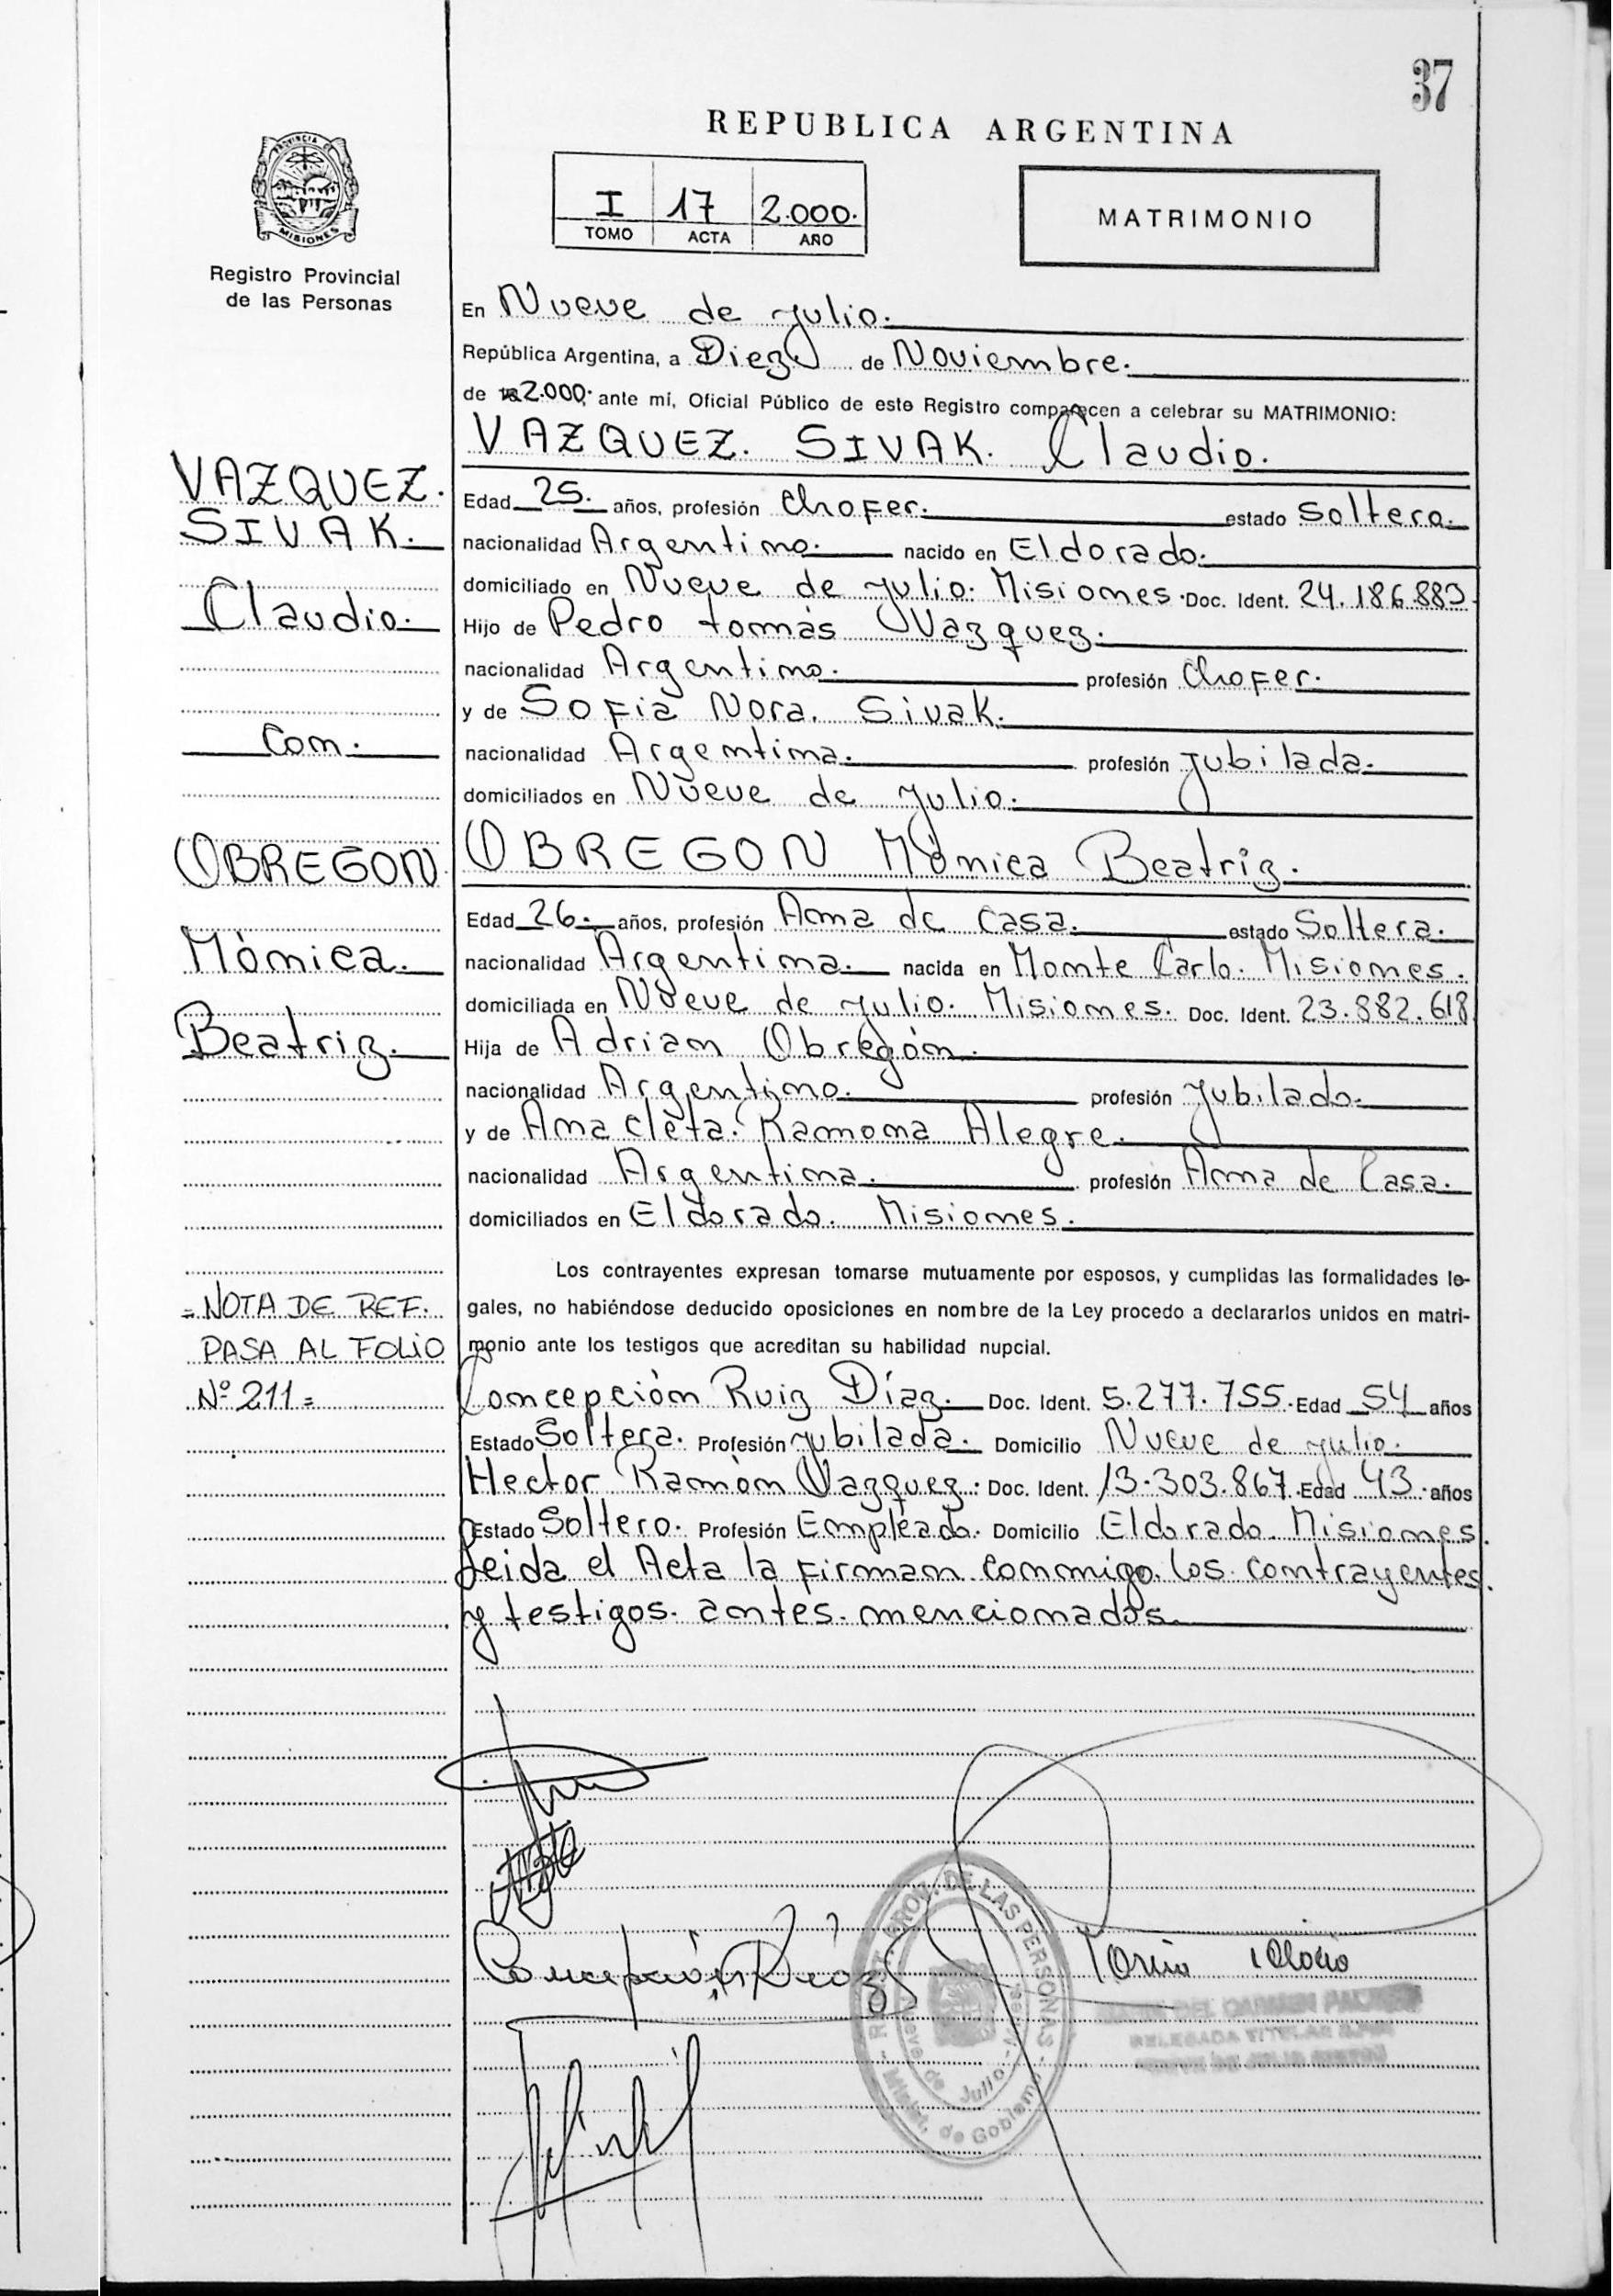 37
REPUBLICA ARGENTINA
PROVINCIA DE
MISIONES
Registro Provincial
de las Personas
I 17 2.000.
TOMO ACTA AÑO
MATRIMONIO
En Nueve de julio.
República Argentina, a Diez de Noviembre.
de 2.000. ante mí, Oficial Público de este Registro comparecen a celebrar su MATRIMONIO:
VAZQUEZ. SIVAK. Claudio.
VAZQUEZ.
SIVAK.
Claudio.
Con.
OBREGON
Mónica.
Beatriz.
Edad 25. años, profesión Chofer. estado Soltero.
nacionalidad Argentino. nacido en Eldorado.
domiciliado en Nueve de julio. Misiones. Doc. Ident. 24.186.883.
Hijo de Pedro tomás Vazquez.
nacionalidad Argentino. profesión Chofer.
y de Sofia Nora. Sivak.
nacionalidad Argentina. profesión jubilada.
domiciliados en Nueve de julio.
OBREGON Mónica Beatriz.
Edad 26. años, profesión Ama de casa. estado Soltera.
nacionalidad Argentina. nacida en Monte Carlo. Misiones.
domiciliada en Nueve de julio. Misiones. Doc. Ident. 23.882.618
Hija de Adrian Obregón.
nacionalidad Argentino. profesión jubilado.
y de Ana cleta. Ramona Alegre.
nacionalidad Argentina. profesión Ama de Casa.
domiciliados en Eldorado. Misiones.
Los contrayentes expresan tomarse mutuamente por esposos, y cumplidas las formalidades le-
gales, no habiéndose deducido oposiciones en nombre de la Ley procedo a declararlos unidos en matri-
monio ante los testigos que acreditan su habilidad nupcial.
= NOTA DE REF.
PASA AL FOLIO
Nº 211 =
Concepción Ruiz Díaz. Doc. Ident. 5.277.755. Edad 54 años
Estado Soltera. Profesión jubilada. Domicilio Nueve de julio.
Hector Ramón Vazquez. Doc. Ident. 13.303.867. Edad 43. años
Estado Soltero. Profesión Empleado. Domicilio Eldorado. Misiones.
Leida el Acta la firman conmigo los contrayentes.
y testigos. antes. mencionados.
Concepción Ruiz
PROV. DE LAS PERSONAS
Nueve de Julio
Minist. de Gobierno
DEL CARMEN
DELEGADA TITULAR